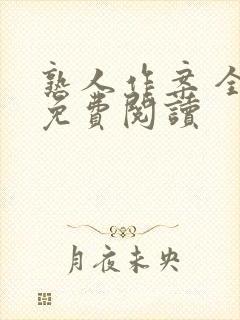 熟人作案全
免費閱讀
月夜未央